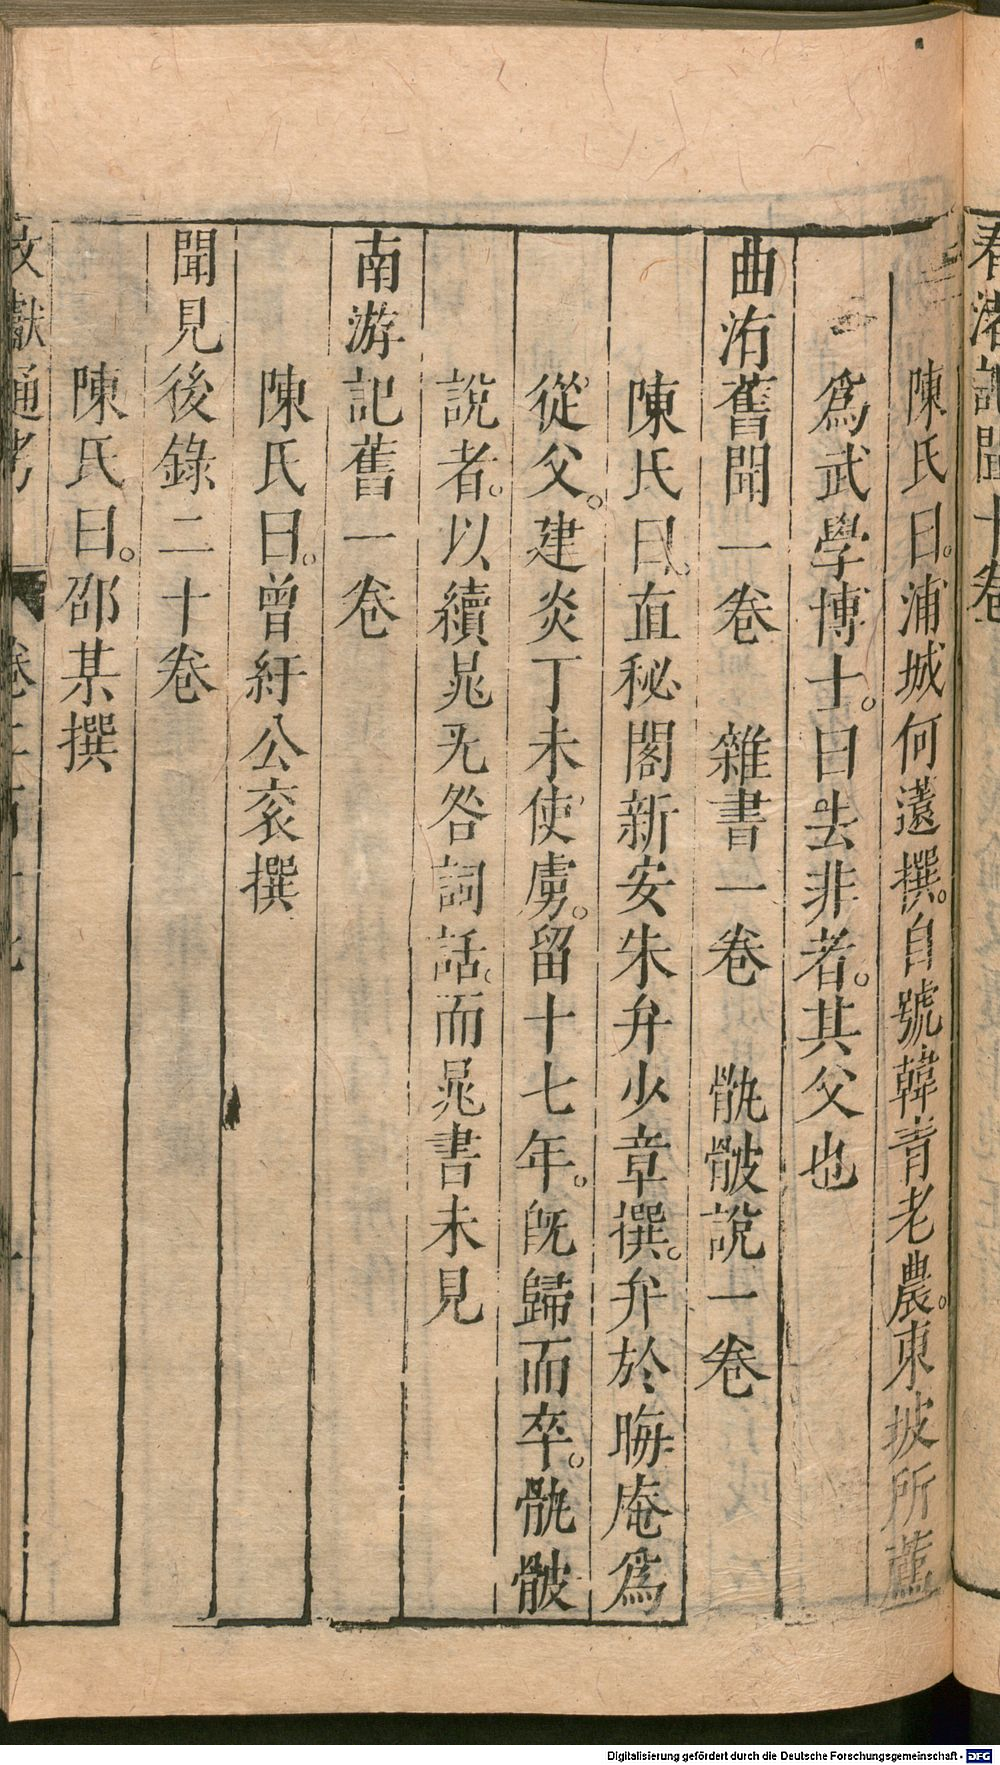 春渚記聞十卷
陳氏曰浦城何薳撰自號韓青老農東坡所薦
爲武學博士曰去非者其父也
曲洧舊聞一卷 雜書一卷 骩骳說一卷
陳氏曰直秘閣新安朱弁少章撰弁於晦庵爲
從父建炎丁未使虜留十七年旣歸而卒骩骳
說者以續晁旡咎詞話而晁書未見
南游記舊一卷
陳氏曰曾紆公衮撰
聞見後錄二十卷
陳氏曰邵某撰
文獻通考 卷二百十
Digitalisierung gefördert durch die Deutsche Forschungsgemeinschaft - DFG